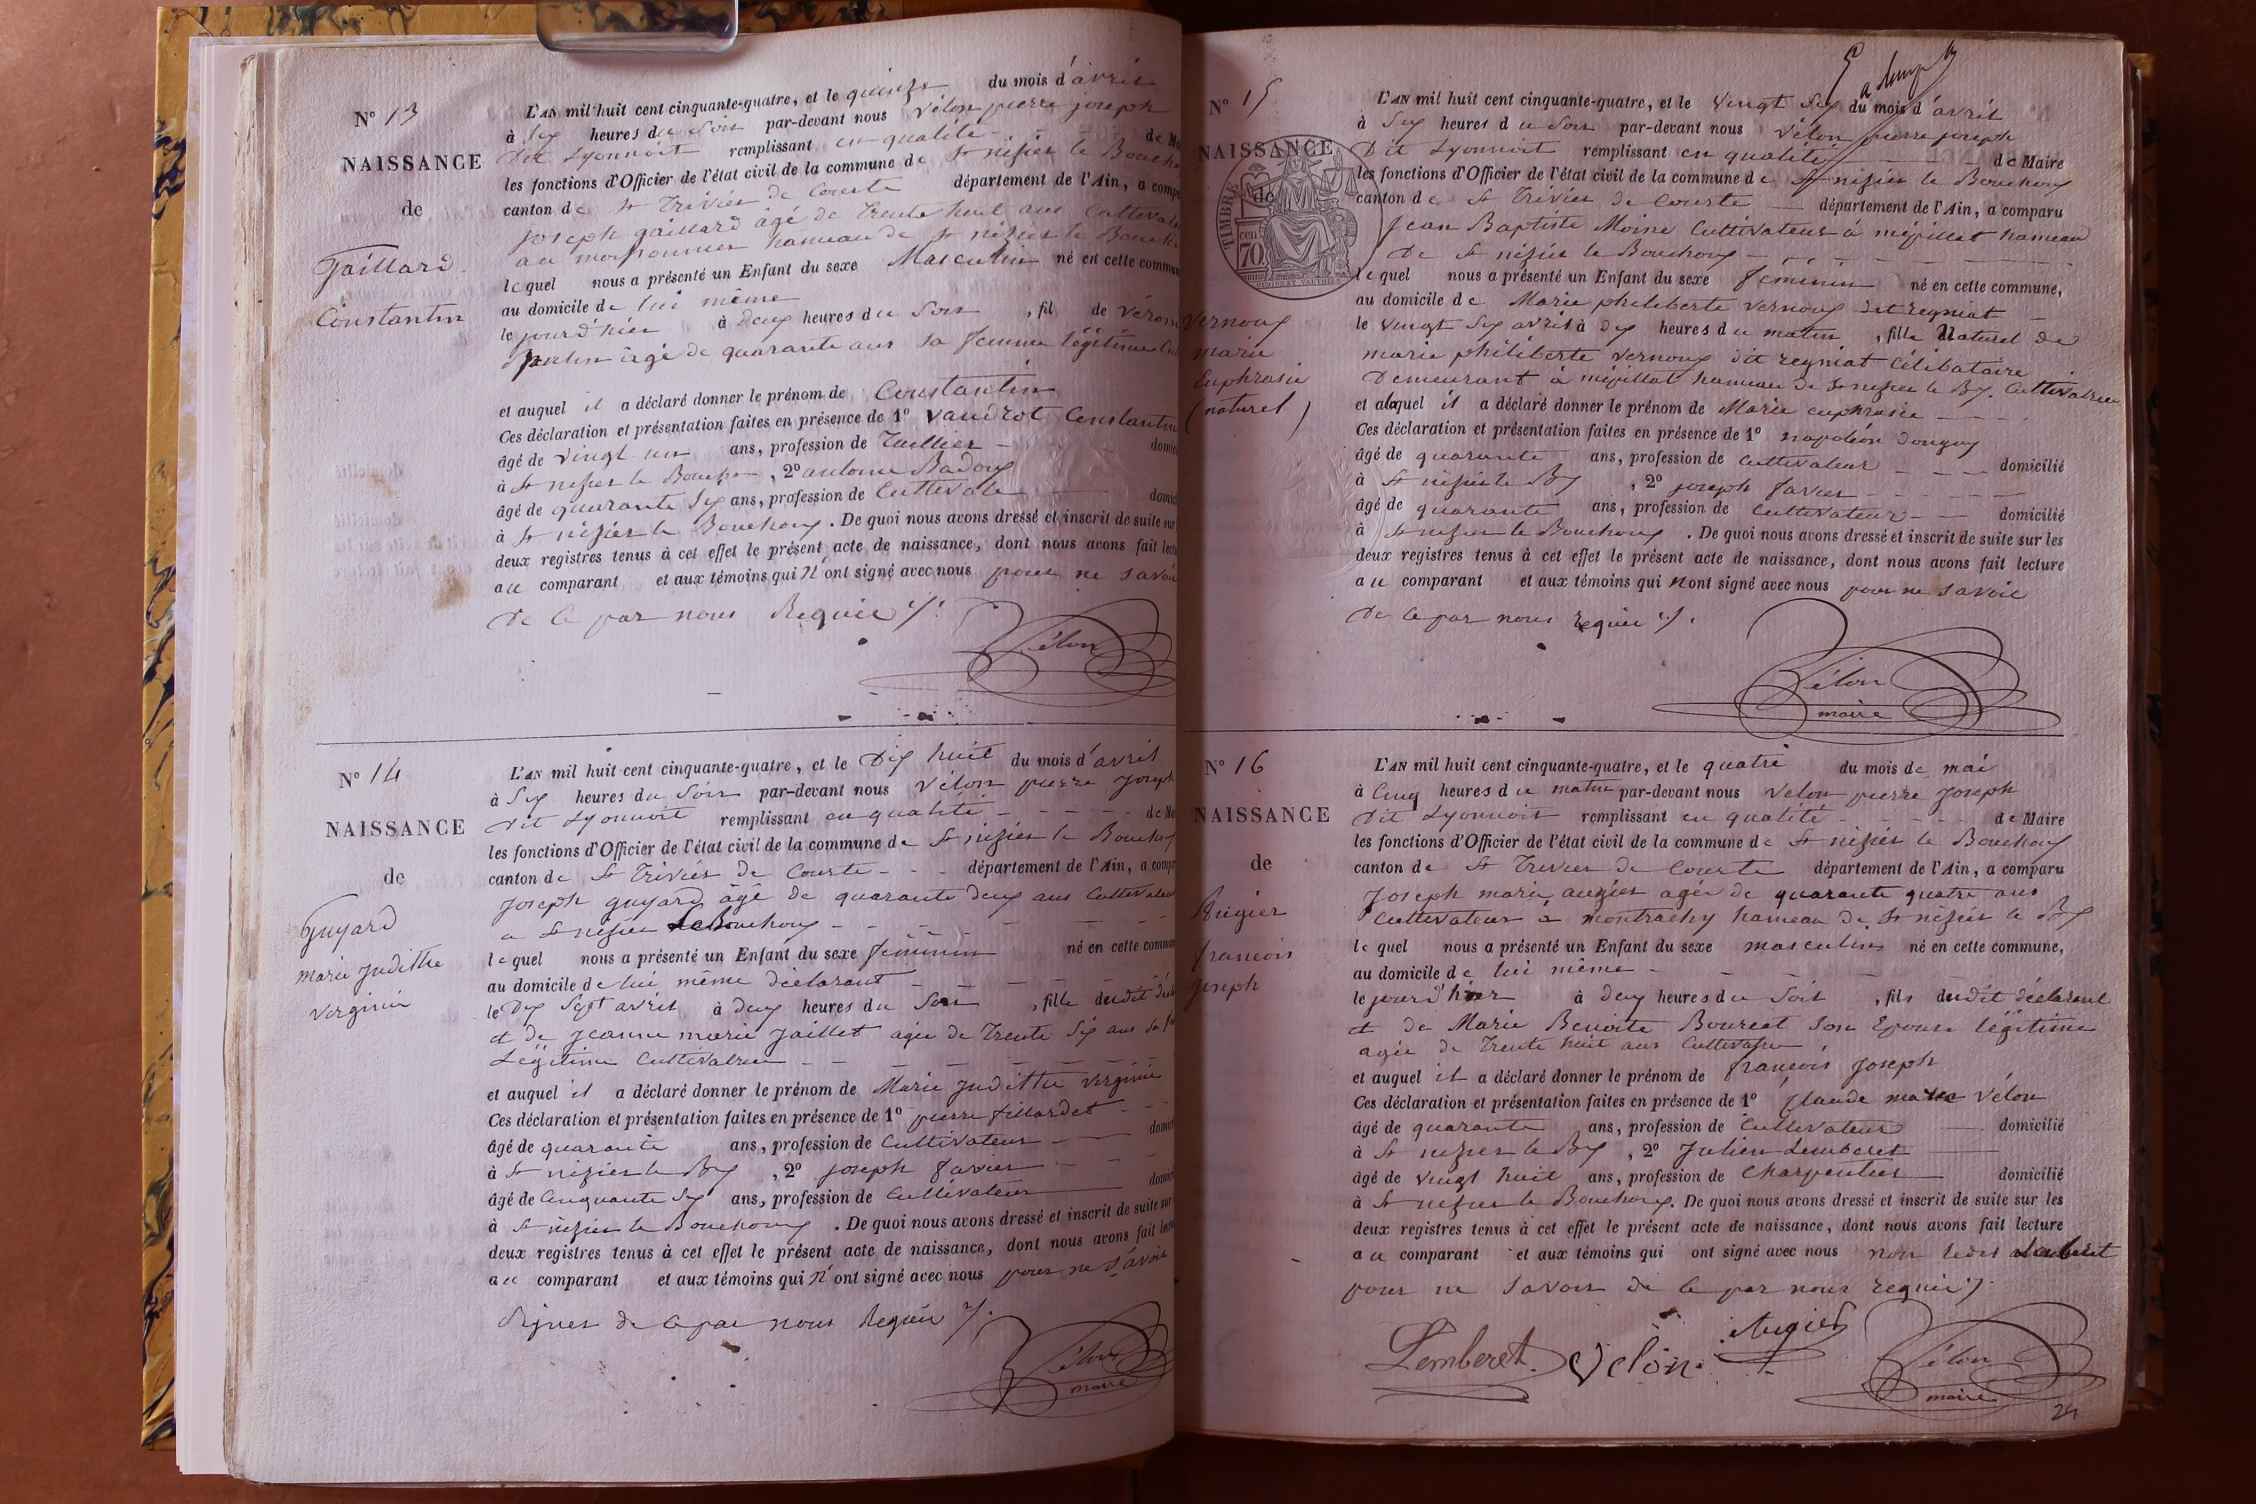 N° 13
NAISSANCE
de
Gaillard
Constantin
L'AN mil huit cent cinquante-quatre, et le quinze du mois d'avril
à six heures du soir par-devant nous Vélon pierre joseph
dit Lyonnoit remplissant en qualité de
les fonctions d'Officier de l'état civil de la commune de St nizier le
canton de St Trivier de Courte département de l'Ain, a
joseph gaillard âgé de trente huit ans
au hameau de St nizier le
lequel nous a présenté un Enfant du sexe Masculin né en cette
au domicile de lui même
le jour d'hier à deux heures du soir, fil de
âgé de quarante ans sa femme légitime
et auquel il a déclaré donner le prénom de Constantin
Ces déclaration et présentation faites en présence de 1° Vaudrot Constantin
âgé de vingt un ans, profession de
à St nizier le, 2° antoine Badoux
âgé de quarante six ans, profession de
à St nizier le Bouchoux. De quoi nous avons dressé et inscrit de suite sur
deux registres tenus à cet effet le présent acte de naissance, dont nous avons fait
au comparant et aux témoins qui n'ont signé avec nous pour ne
de ce par nous Requie ./.
Vélon
N° 14
NAISSANCE
de
Guyard
marie Judithe
virginie
L'AN mil huit cent cinquante-quatre, et le Dix huit du mois d'avril
à six heures du soir par-devant nous Vélon pierre joseph
dit Lyonnoit remplissant en qualité de
les fonctions d'Officier de l'état civil de la commune de St nizier le Bouchoux
canton de St Trivier de Courte département de l'Ain, a
joseph guyard âgé de quarante deux ans
a St nizier le Bouchoux
lequel nous a présenté un Enfant du sexe féminin né en cette
au domicile de lui même déclarant
le Dix Sept avril à deux heures du Soir, fille dudit
et de jeanne marie jaillet agée de Trente six ans sa
Légitime Cultivatrice
et auquel il a déclaré donner le prénom de Marie Judithe virginie
Ces déclaration et présentation faites en présence de 1° pierre fillardet
âgé de quarante ans, profession de Cultivateur
à St nizier le Bx, 2° joseph favier
âgé de Cinquante six ans, profession de Cultivateur
à St nizier le Bouchoux. De quoi nous avons dressé et inscrit de suite sur
deux registres tenus à cet effet le présent acte de naissance, dont nous avons fait
au comparant et aux témoins qui n'ont signé avec nous pour ne savoir
signer de ce par nous Requie ./.
Vélon
maire
N° 15
NAISSANCE
de
TIMBRE
cen
70
Vernoux
marie
Euphrasie
(naturel)
L'AN mil huit cent cinquante-quatre, et le vingt six du mois d'avril
à six heures du soir par-devant nous Vélon pierre joseph
dit Lyonnoit remplissant en qualité de Maire
les fonctions d'Officier de l'état civil de la commune de St nizier le Bouchoux
canton de St Trivier de Courte département de l'Ain, a comparu
Jean Baptiste Moine Cultivateur à mépillat hameau
de St nizier le Bouchoux
lequel nous a présenté un Enfant du sexe féminin né en cette commune,
au domicile de Marie philiberte vernoux dit regniat
le vingt six avril à dix heures du matin, fille Naturel de
marie philiberte vernoux dit regniat Célibataire
Demeurant à mépillat hameau de St nizier le Bx. Cultivatrice
et alaquel il a déclaré donner le prénom de Marie euphrasie
Ces déclaration et présentation faites en présence de 1° napoléon
âgé de quarante ans, profession de Cultivateur domicilié
à St nizier le Bx, 2° joseph favier
âgé de quarante ans, profession de Cultivateur domicilié
à St nizier le Bouchoux. De quoi nous avons dressé et inscrit de suite sur les
deux registres tenus à cet effet le présent acte de naissance, dont nous avons fait lecture
au comparant et aux témoins qui nont signé avec nous pour ne savoir
de ce par nous requie ./.
Vélon
maire
N° 16
NAISSANCE
de
Augier
françois
joseph
L'AN mil huit cent cinquante-quatre, et le quatre du mois de mai
à Cinq heures du matin par-devant nous Vélon pierre joseph
dit Lyonnoit remplissant en qualité de Maire
les fonctions d'Officier de l'état civil de la commune de St nizier le Bouchoux
canton de St Trivier de Courte département de l'Ain, a comparu
joseph marie augier agée de quarante quatre ans
Cultivateur à montrachy hameau de St nizier le Bx
lequel nous a présenté un Enfant du sexe masculin né en cette commune,
au domicile de lui même
le jour d'hier à deux heures du soir, fils dudit déclarant
et de Marie Benoite Son Epouse légitime
agée de Trente huit ans Cultivatrice
et auquel il a déclaré donner le prénom de françois joseph
Ces déclaration et présentation faites en présence de 1° Claude marie Vélon
âgé de quarante ans, profession de Cultivateur domicilié
à St nizier le Bx, 2° Julien Lemberet
âgé de vingt huit ans, profession de Charpentier domicilié
à St nizier le Bouchoux. De quoi nous avons dressé et inscrit de suite sur les
deux registres tenus à cet effet le présent acte de naissance, dont nous avons fait lecture
au comparant et aux témoins qui ont signé avec nous non
pour ne savoir de ce par nous requie ./.
Lemberet Velon Augier Vélon
maire
24